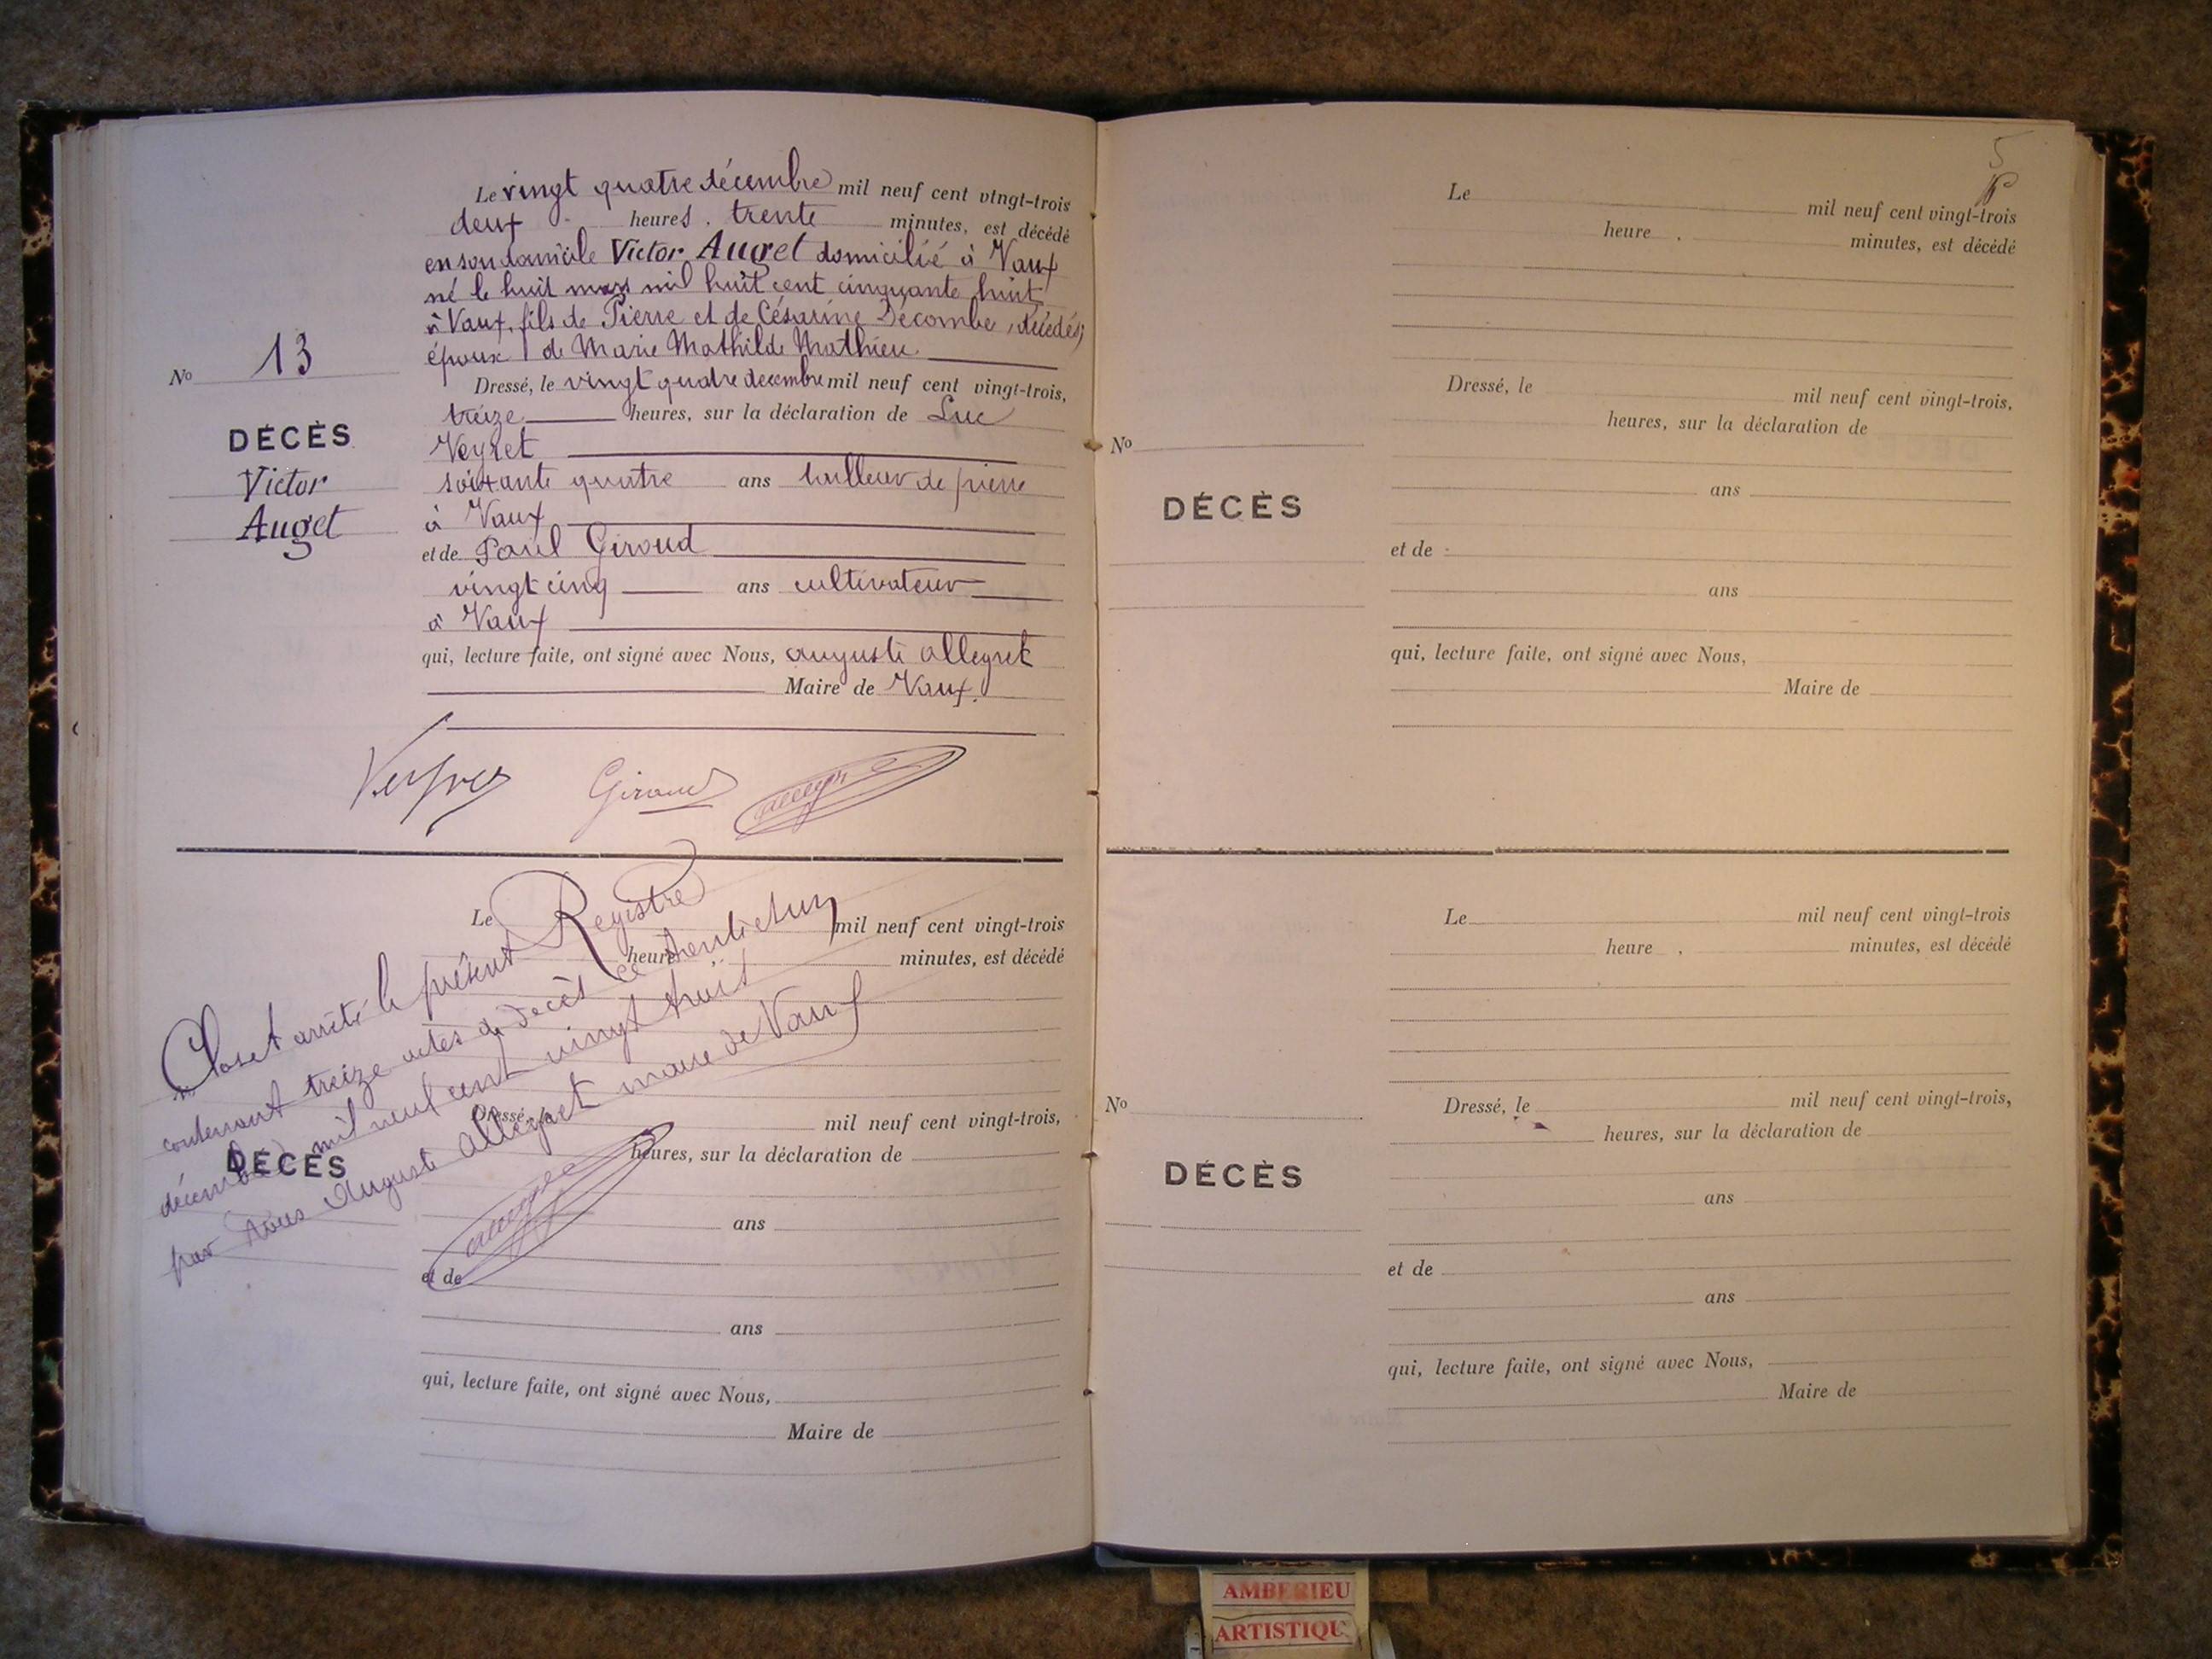 Le vingt quatre décembre mil neuf cent vingt-trois
deux heures. trente minutes, est décédé
en son domicile Victor Auget domicilié à Vaux
né le huit mars mil huit cent cinquante huit
à Vaux, fils de Pierre et de Césarine Décombe, décédés,
époux de Marie Mathilde Mathieu.
No 13
Dressé, le vingt quatre decembre mil neuf cent vingt-trois,
treize heures, sur la déclaration de Luc
DÉCÈS
Veyret
Victor
soixante quatre ans tailleur de pierre
Auget
à Vaux
et de Paul Giroud
vingt cinq ans cultivateur
à Vaux
qui, lecture faite, ont signé avec Nous, auguste allegret
Maire de Vaux.
Veyret Giroud
Le mil neuf cent vingt-trois
heure minutes, est décédé
Clos et arrêté le présent Registre
contenant treize actes de decès ce trente et un
décembre mil neuf cent vingt trois
par Nous Auguste Allegret maire de Vaux
Dressé, le mil neuf cent vingt-trois,
heures, sur la déclaration de
DÉCÈS
ans
et de
ans
qui, lecture faite, ont signé avec Nous,
Maire de
5
Le mil neuf cent vingt-trois
heure . minutes, est décédé
Dressé, le mil neuf cent vingt-trois,
heures, sur la déclaration de
No
ans
DÉCÈS
et de
ans
qui, lecture faite, ont signé avec Nous,
Maire de
Le mil neuf cent vingt-trois
heure . minutes, est décédé
No
Dressé, le mil neuf cent vingt-trois,
heures, sur la déclaration de
DÉCÈS
ans
et de
ans
qui, lecture faite, ont signé avec Nous,
Maire de
AMBERIEU
ARTISTIQU